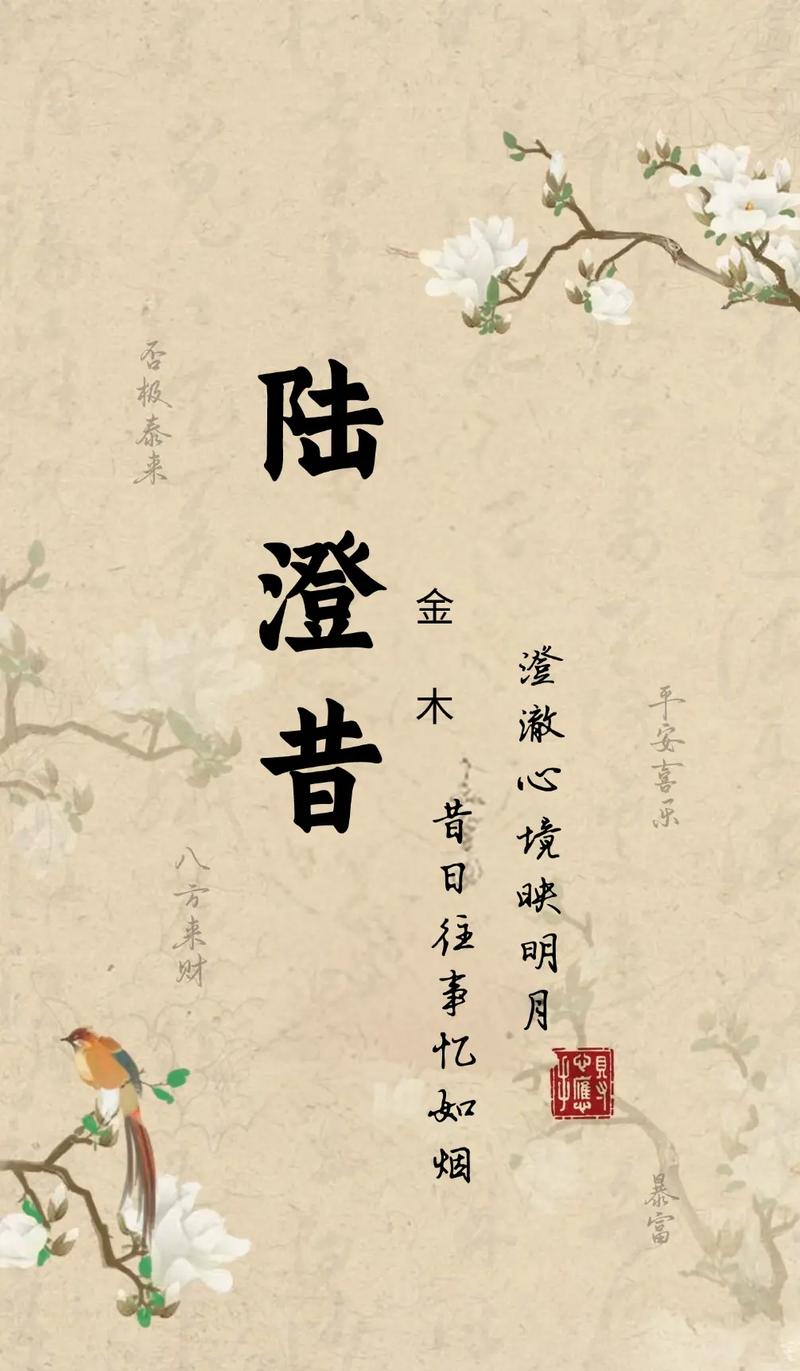 平安喜乐
暴富
澄澈心境映明月
昔日往事忆如烟
金木
陆澄昔
八方来财
否极泰来